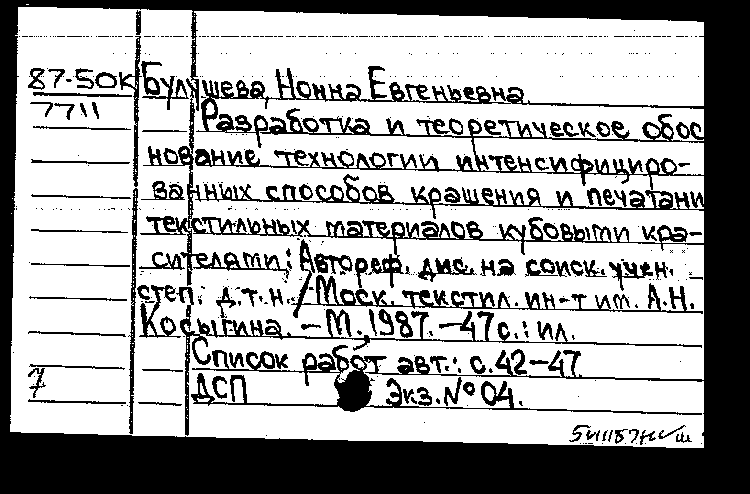 87-50К Булушева, Нонна Евгеньевна
7711 Разработка и теоретическое обос
нование технологии интенсифициро-
ванных способов крашения и печатани
текстильных материалов кубовыми кра-
сителями: Автореф. дис. на соиск. учен.
степ. д.т.н. / Моск. текстил. ин-т им. А.Н.
Косыгина. – М., 1987. – 47 с.: ил.
Список работ авт.: с. 42–47.
7 ДСП Экз. № 04.